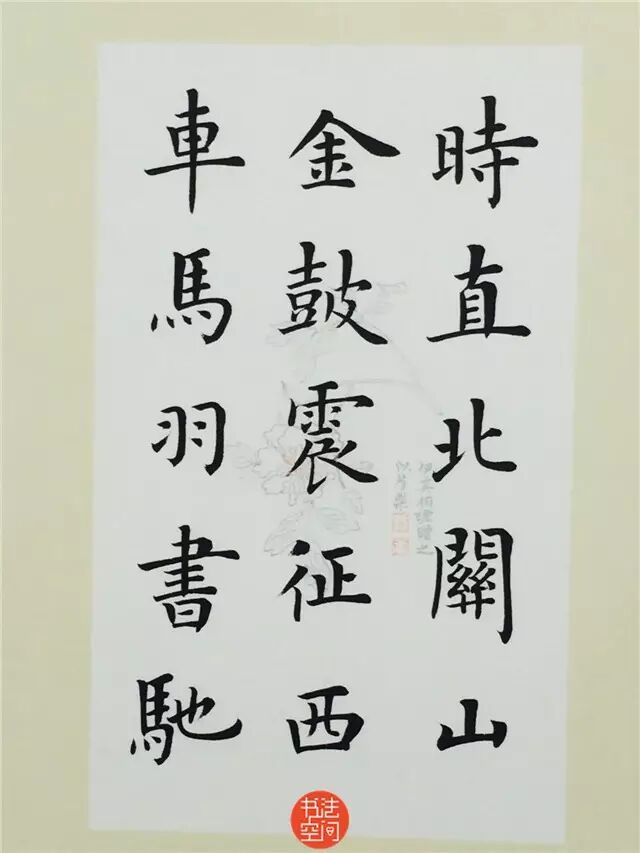 時直北關山
金鼓震征西
車馬羽書馳
书法空间